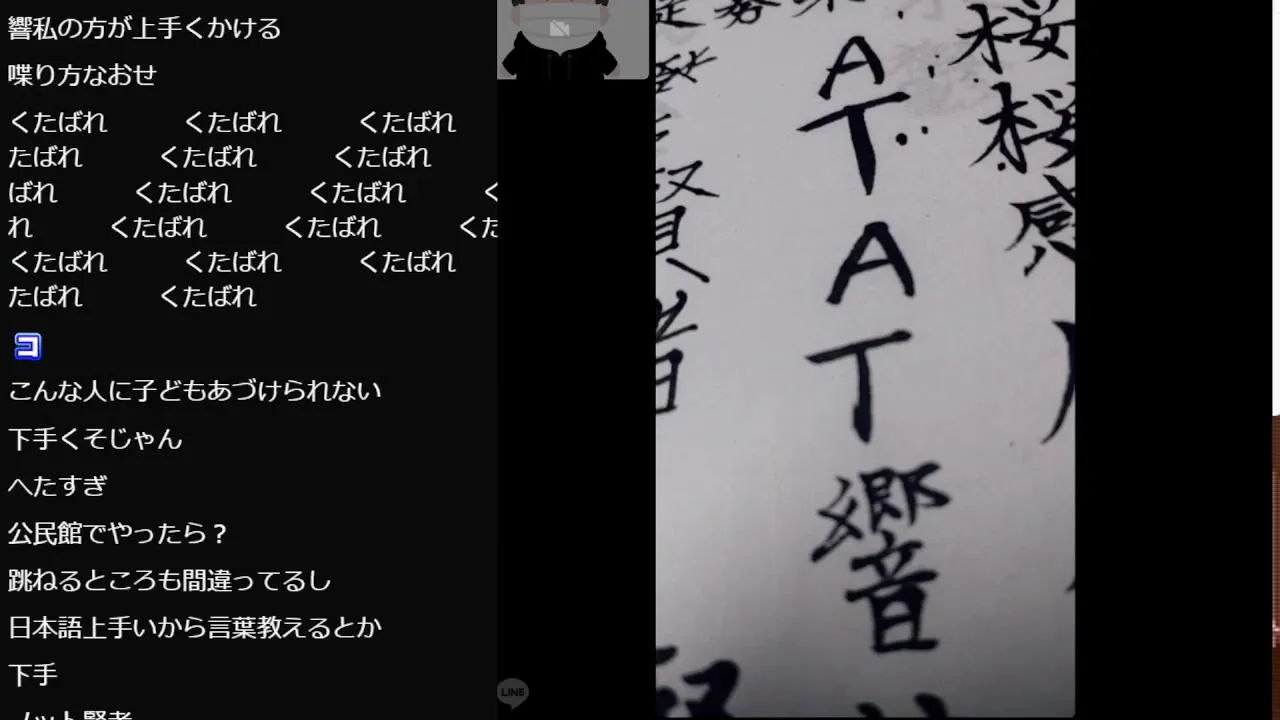 響私の方が上手くかける
喋り方なおせ
くたばれ くたばれ くたばれ
たばれ くたばれ くたばれ
ばれ くたばれ くたばれ く
れ くたばれ くたばれ くた
くたばれ くたばれ くたばれ
たばれ くたばれ
コ
こんな人に子どもあづけられない
下手くそじゃん
へたすぎ
公民館でやったら？
跳ねるところも間違ってるし
日本語上手いから言葉教えるとか
下手
LINE
桜
桜
感
A
T
A
T
響
賢者